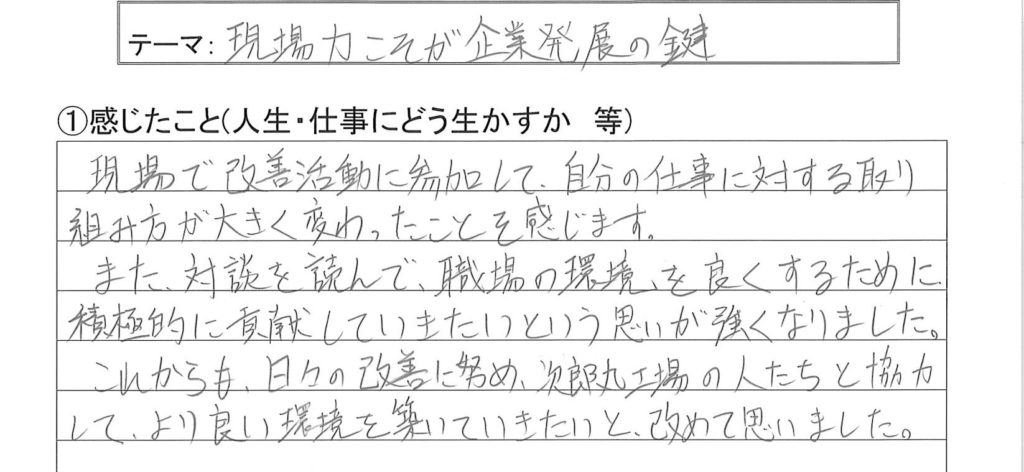 テーマ: 現場力こそが企業発展の鍵
①感じたこと(人生・仕事にどう生かすか 等)
現場で改善活動に参加して、自分の仕事に対する取り
組み方が大きく変わったことを感じます。
また、対談を読んで、職場の環境を良くするために、
積極的に貢献していきたいという思いが強くなりました。
これからも、日々の改善に努め、次郎丸工場の人たちと協力
して、より良い環境を築いていきたいと、改めて思いました。